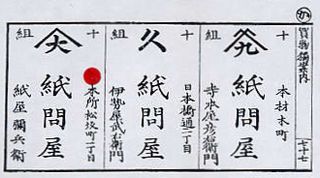 か
買物獨案内
七十七
十
組
本材木町
紙問屋
十
組
久
日本橋通二丁目
紙問屋
伊勢屋武右衛門
十
組
大
本所松坂町二丁目
紙問屋
紙屋彌兵衛